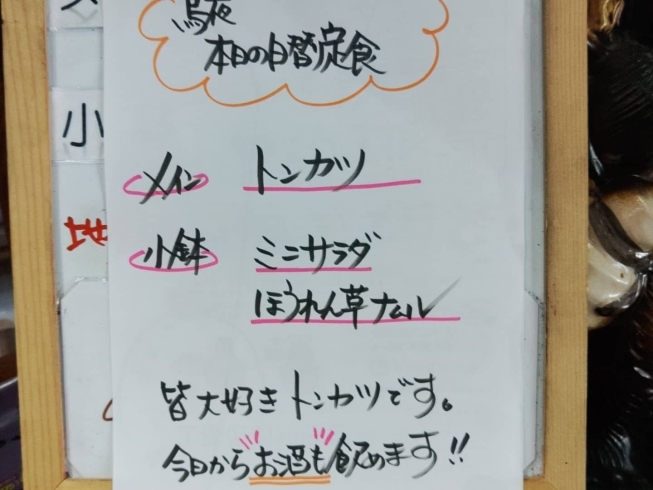 烏夜
本日の日替定食
小
メイン トンカツ
地
小鉢 ミニサラダ
ほうれん草ナムル
皆大好きトンカツです。
今日からお酒も飲めます!!